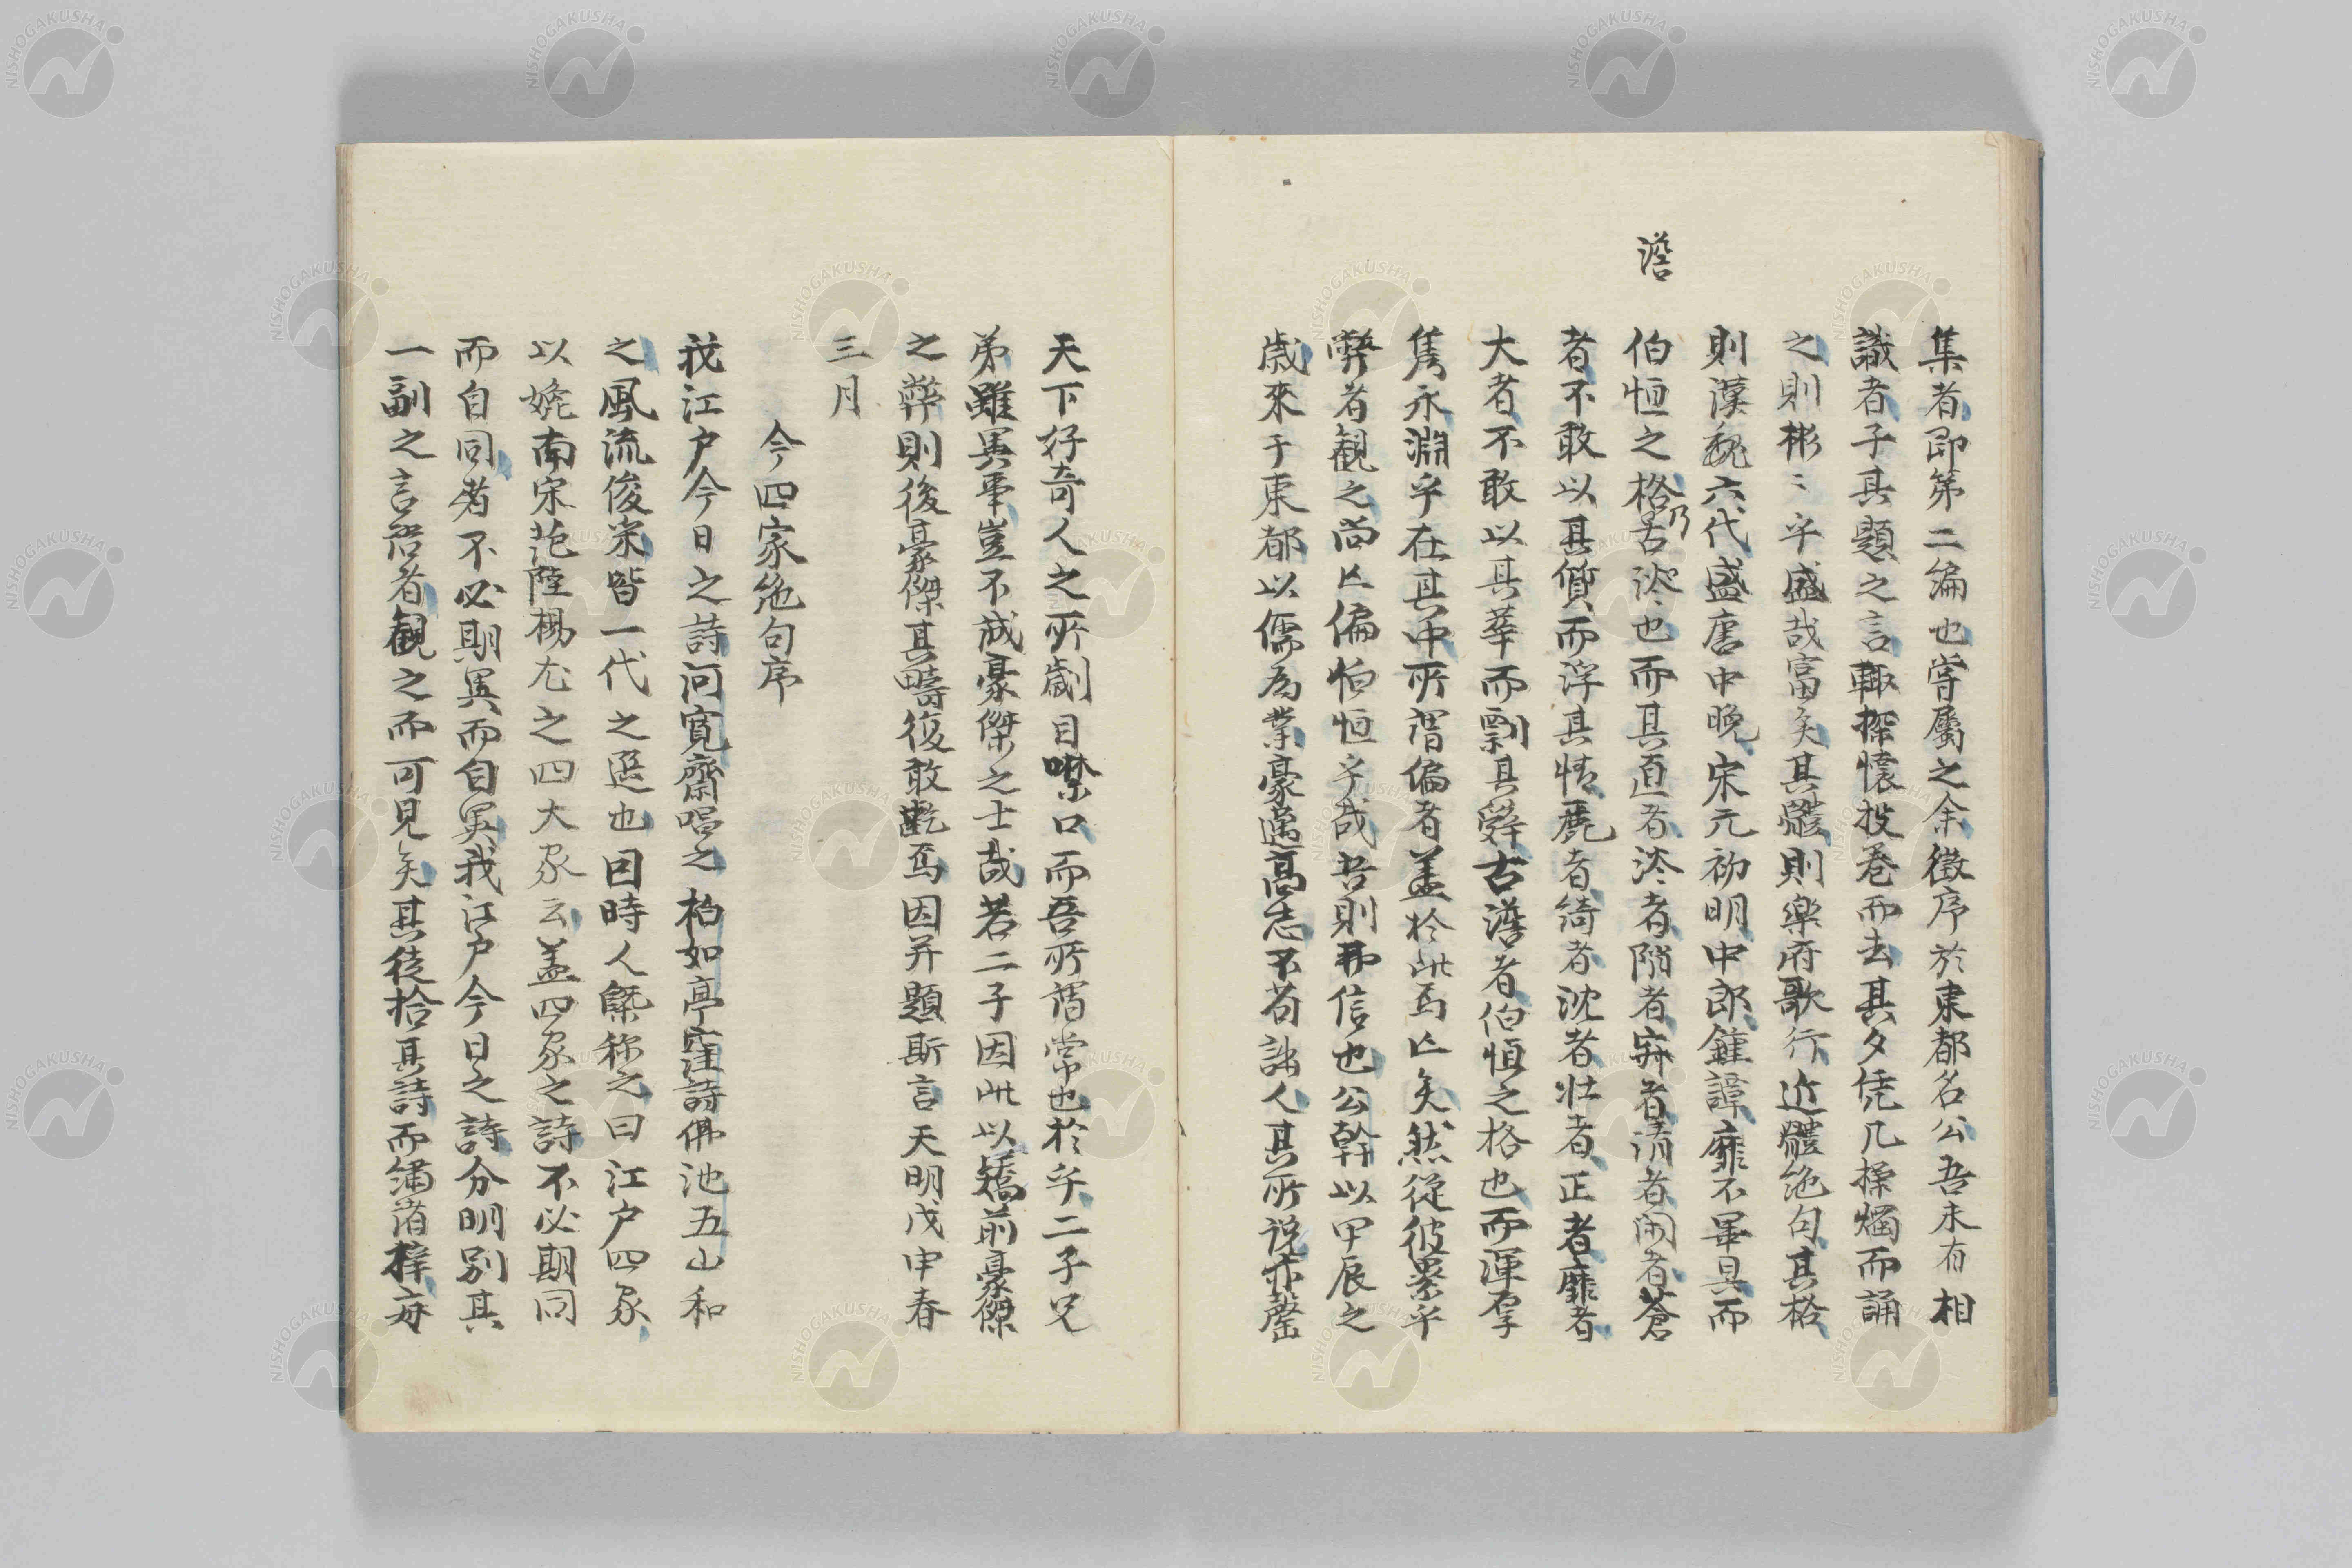 澹
集者即第二編也嘗屬之余徵序於東都名公吾未有相
識者子其題之言輙探懷投卷而去其夕凭几操燭而誦
之則彬〻乎盛哉富矣其體則楽府歌行近體絶句其格
則漢魏六代盛唐中晩宋元初明中郎鍾譚靡不畢具而
伯恒之格乃古澹也而其直者澹者階者穽者清者闲者蒼
者不敢以其質而浮其情麗者綺者沈者壮者正者靡者
大者不敢以其華而剽其辞古澹者伯恒之格也而渾厚
隽永淵乎在其中所謂偏者盖於此焉亾矣然從彼累乎
弊者観之尚亾偏伯恒乎哉吾則弗信也公幹以甲辰之
歳來于東都以儒為業豪邁高志不苟誹人其所説亦罄
天下好奇人之所劌目噤口而吾所謂常也於乎二子兄
弟雖異事豈不誠豪傑之士哉若二子因此以矯前豪傑
之弊則後豪傑其疇復敢亂焉因并題斯言天明戊申春
三月
今四家絶句序
我江户今日之詩河寛齋唱之柏如亭窪詩佛池五山和
之風流俊楽皆一代之選也因時人槩称之曰江户四家
以媲南宋范陸楊尤之四大家云盖四家之詩不必期同
而自同者不必期異而自異我江户今日之詩分明别其
一副之言啓者観之而可見矣其徒拾其詩而繡諸梓毎